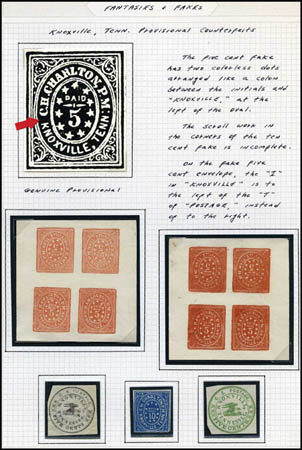 FANTASIES & FAKES
Knoxville, Tenn. Provisional Counterfeits
C.H.CHARLTON.P.M.
PAID
5
KNOXVILLE, TENN.
The five cent fake
has two colorless dots
arranged like a colon
between the initials and
"KNOXVILLE," at the
left of the oval.
The scroll work in
the corners of the ten
cent fake is incomplete.
On the fake five
cent envelope, the "I"
in "KNOXVILLE" is to
the left of the "T"
of "POSTAGE," instead
of to the right.
Genuine Provisional